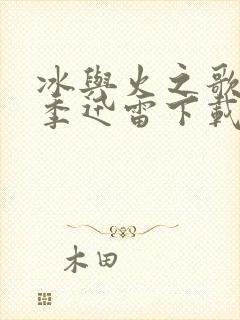 冰與火之歌
季迅雷下載
木田